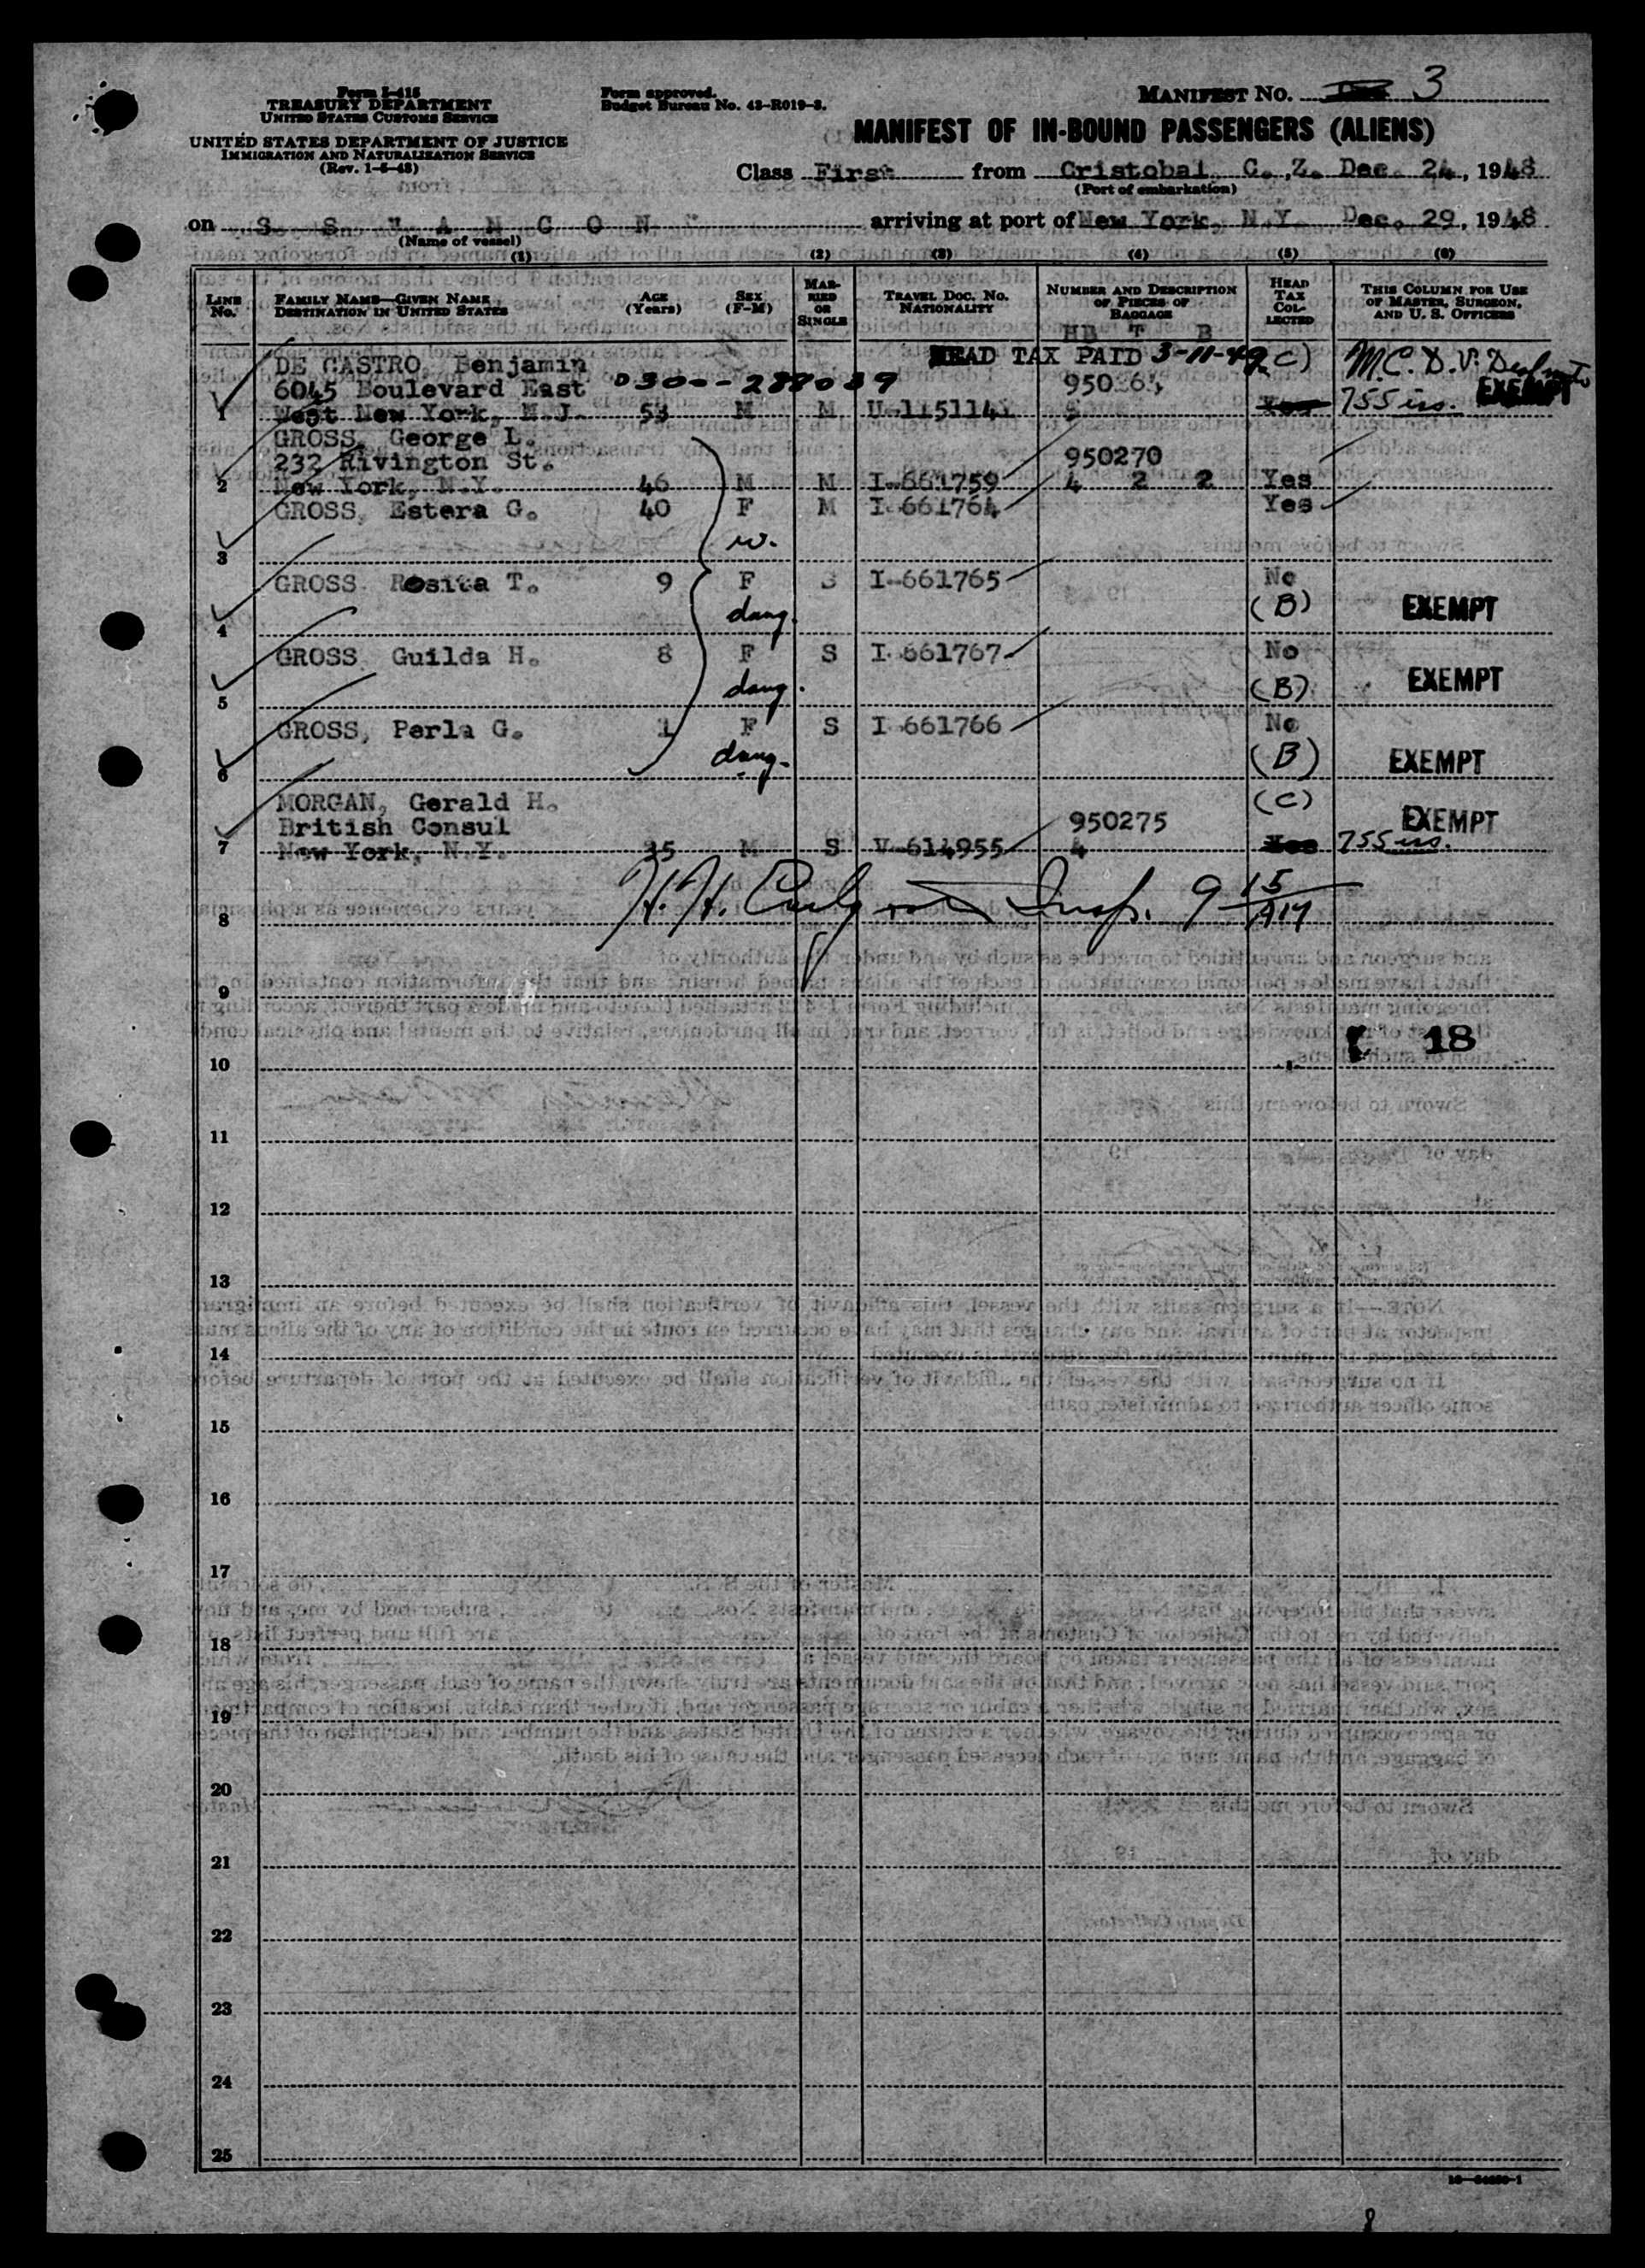 Form I-415
TREASURY DEPARTMENT
UNITED STATES CUSTOMS SERVICE
UNITED STATES DEPARTMENT OF JUSTICE
IMMIGRATION AND NATURALIZATION SERVICE
(Rev. 1-5-48)
Form approved.
Budget Bureau No. 43-R019-3.
MANIFEST NO. 3
MANIFEST OF IN-BOUND PASSENGERS (ALIENS)
Class First from Cristobal, C. Z. Dec. 24, 1948
(Port of embarkation)
on S. S. "ANCON" arriving at port of New York, N.Y. Dec. 29, 1948
(Name of vessel)
(1) (2) (3) (4) (5) (6)
LINE NO. FAMILY NAME—GIVEN NAME DESTINATION IN UNITED STATES AGE (YEARS) SEX (F-M) MARRIED OR SINGLE TRAVEL DOC. NO. NATIONALITY NUMBER AND DESCRIPTION OF PIECES OF BAGGAGE HEAD TAX COLLECTED THIS COLUMN FOR USE OF MASTER, SURGEON, AND U. S. OFFICERS
HB T B
HEAD TAX PAID 3-11-49 C) M.C.D.V.
DE CASTRO, Benjamin
6045 Boulevard East 0300-288089 EXEMPT
1 West New York, N.J. 53 M M U-1151141 Yes 755 iss.
GROSS, George L.
232 Rivington St. 950270
2 New York, N.Y. 46 M M I-661759 4 2 2 Yes
GROSS, Estera G. 40 F M I-661764 Yes
3 w.
GROSS, Rosita T. 9 F S I-661765 No
4 daug. (B) EXEMPT
GROSS, Guilda H. 8 F S I-661767 No
5 daug. (B) EXEMPT
GROSS, Perla G. 1 F S I-661766 No
6 daug. (B) EXEMPT
MORGAN, Gerald H. (C)
British Consul 950275 EXEMPT
7 New York, N.Y. 35 M S V-614955 4 Yes 755 iss.
8 H. H. Insp. 9 15 AM
9
10 18
11
12
13
14
15
16
17
18
19
20
21
22
23
24
25
8